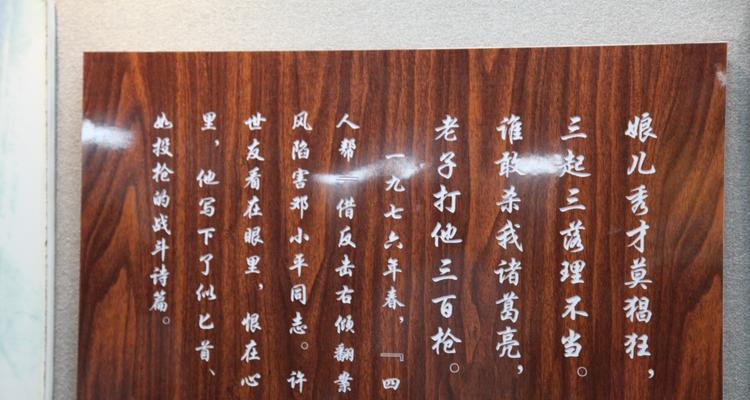 娘儿秀才莫猖狂，
三起三落理不当。
谁敢杀我诸葛亮，
老子打他三百枪。
一九七六年春，『四
人帮』借反击右倾翻案
风陷害邓小平同志。许
世友看在眼里，恨在心
里，他写下了似匕首、
如投枪的战斗诗篇。